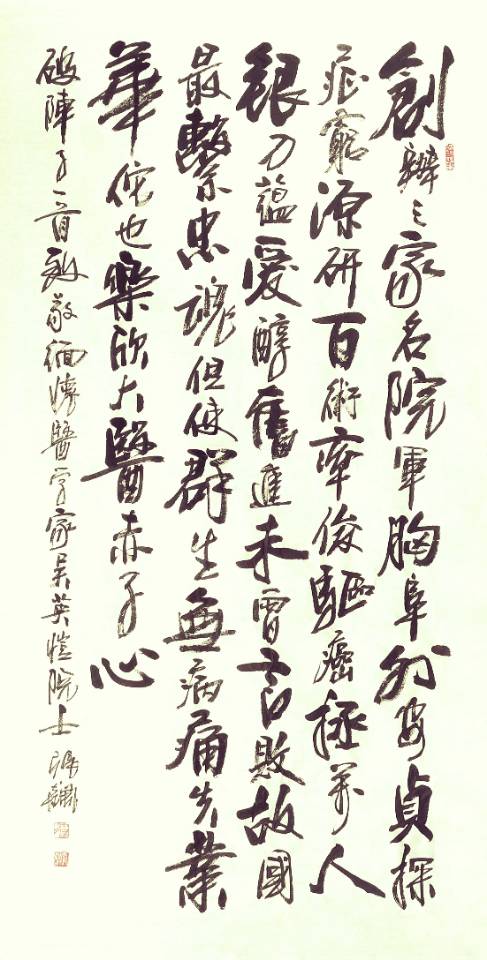 創辦三家名院軍胸阜外安貞探
症窮源研百術率俊驅癌拯萬人
銀刀蘊愛醇奮進未曾言敗故國
最繫忠魂但使群生無病痛失業
華佗也樂欣大醫赤子心
破陣子一首致敬緬懷醫學家吳英愷院士